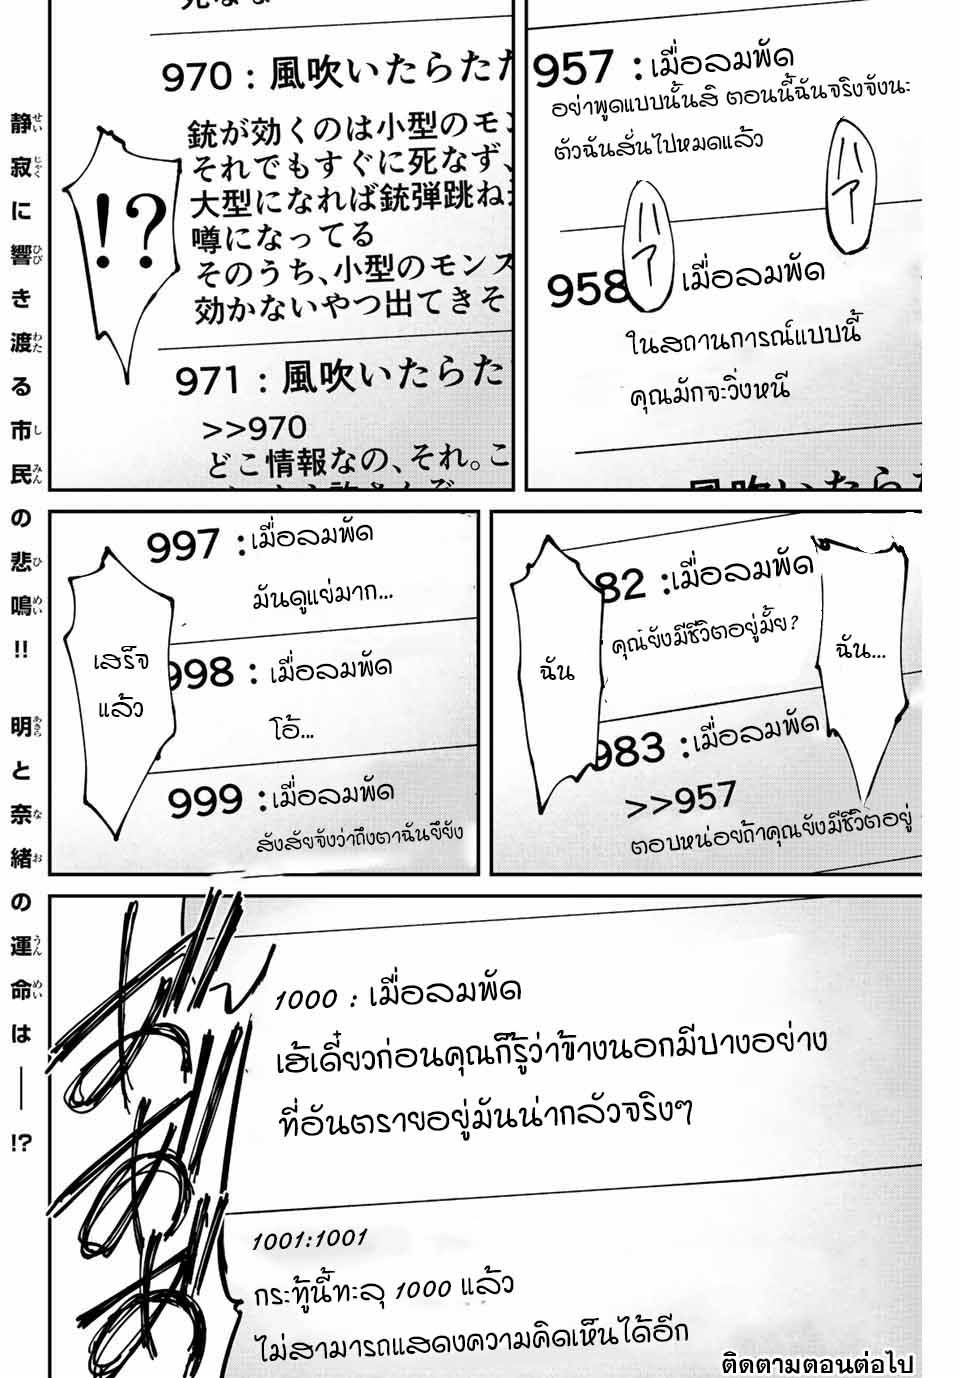 957 : เมื่อลมพัด
อย่าพูดแบบนั้นสิ ตอนนี้ฉันจริงจังนะ
ตัวฉันสั่นไปหมดแล้ว
ハァ
ハァ
958 เมื่อลมพัด
ในสถานการณ์แบบนี้
คุณมักจะวิ่งหนี
970 : 風吹いたらた
銃が効くのは小型のモン
それでもすぐに死なず、
大型になれば銃弾跳ね
噂になってる
そのうち、小型のモンス
効かないやつ出てきそ
!?
971 : 風吹いたらた
>>970
どこ情報なの、それ。こ
82 : เมื่อลมพัด
คุณยังมีชีวิตอยู่มั้ย?
ฉัน...
ฉัน
983 : เมื่อลมพัด
>>957
ตอบหน่อยถ้าคุณยังมีชีวิตอยู่
997 : เมื่อลมพัด
มันดูแย่มาก...
เสร็จ
แล้ว
998 : เมื่อลมพัด
โอ้...
999 : เมื่อลมพัด
สังสัยจังว่าถึงตาฉันยึยัง
1000 : เมื่อลมพัด
เฮ้เดี๋ยวก่อนคุณก็รู้ว่าข้างนอกมีบางอย่าง
ที่อันตรายอยู่มันน่ากลัวจริงๆ
1001:1001
กระทู้นี้ทะลุ 1000 แล้ว
ไม่สามารถแสดงความคิดเห็นได้อีก
ติดตามตอนต่อไป
静寂に響き渡る市民の悲鳴!! 明と奈緒の運命は——!?